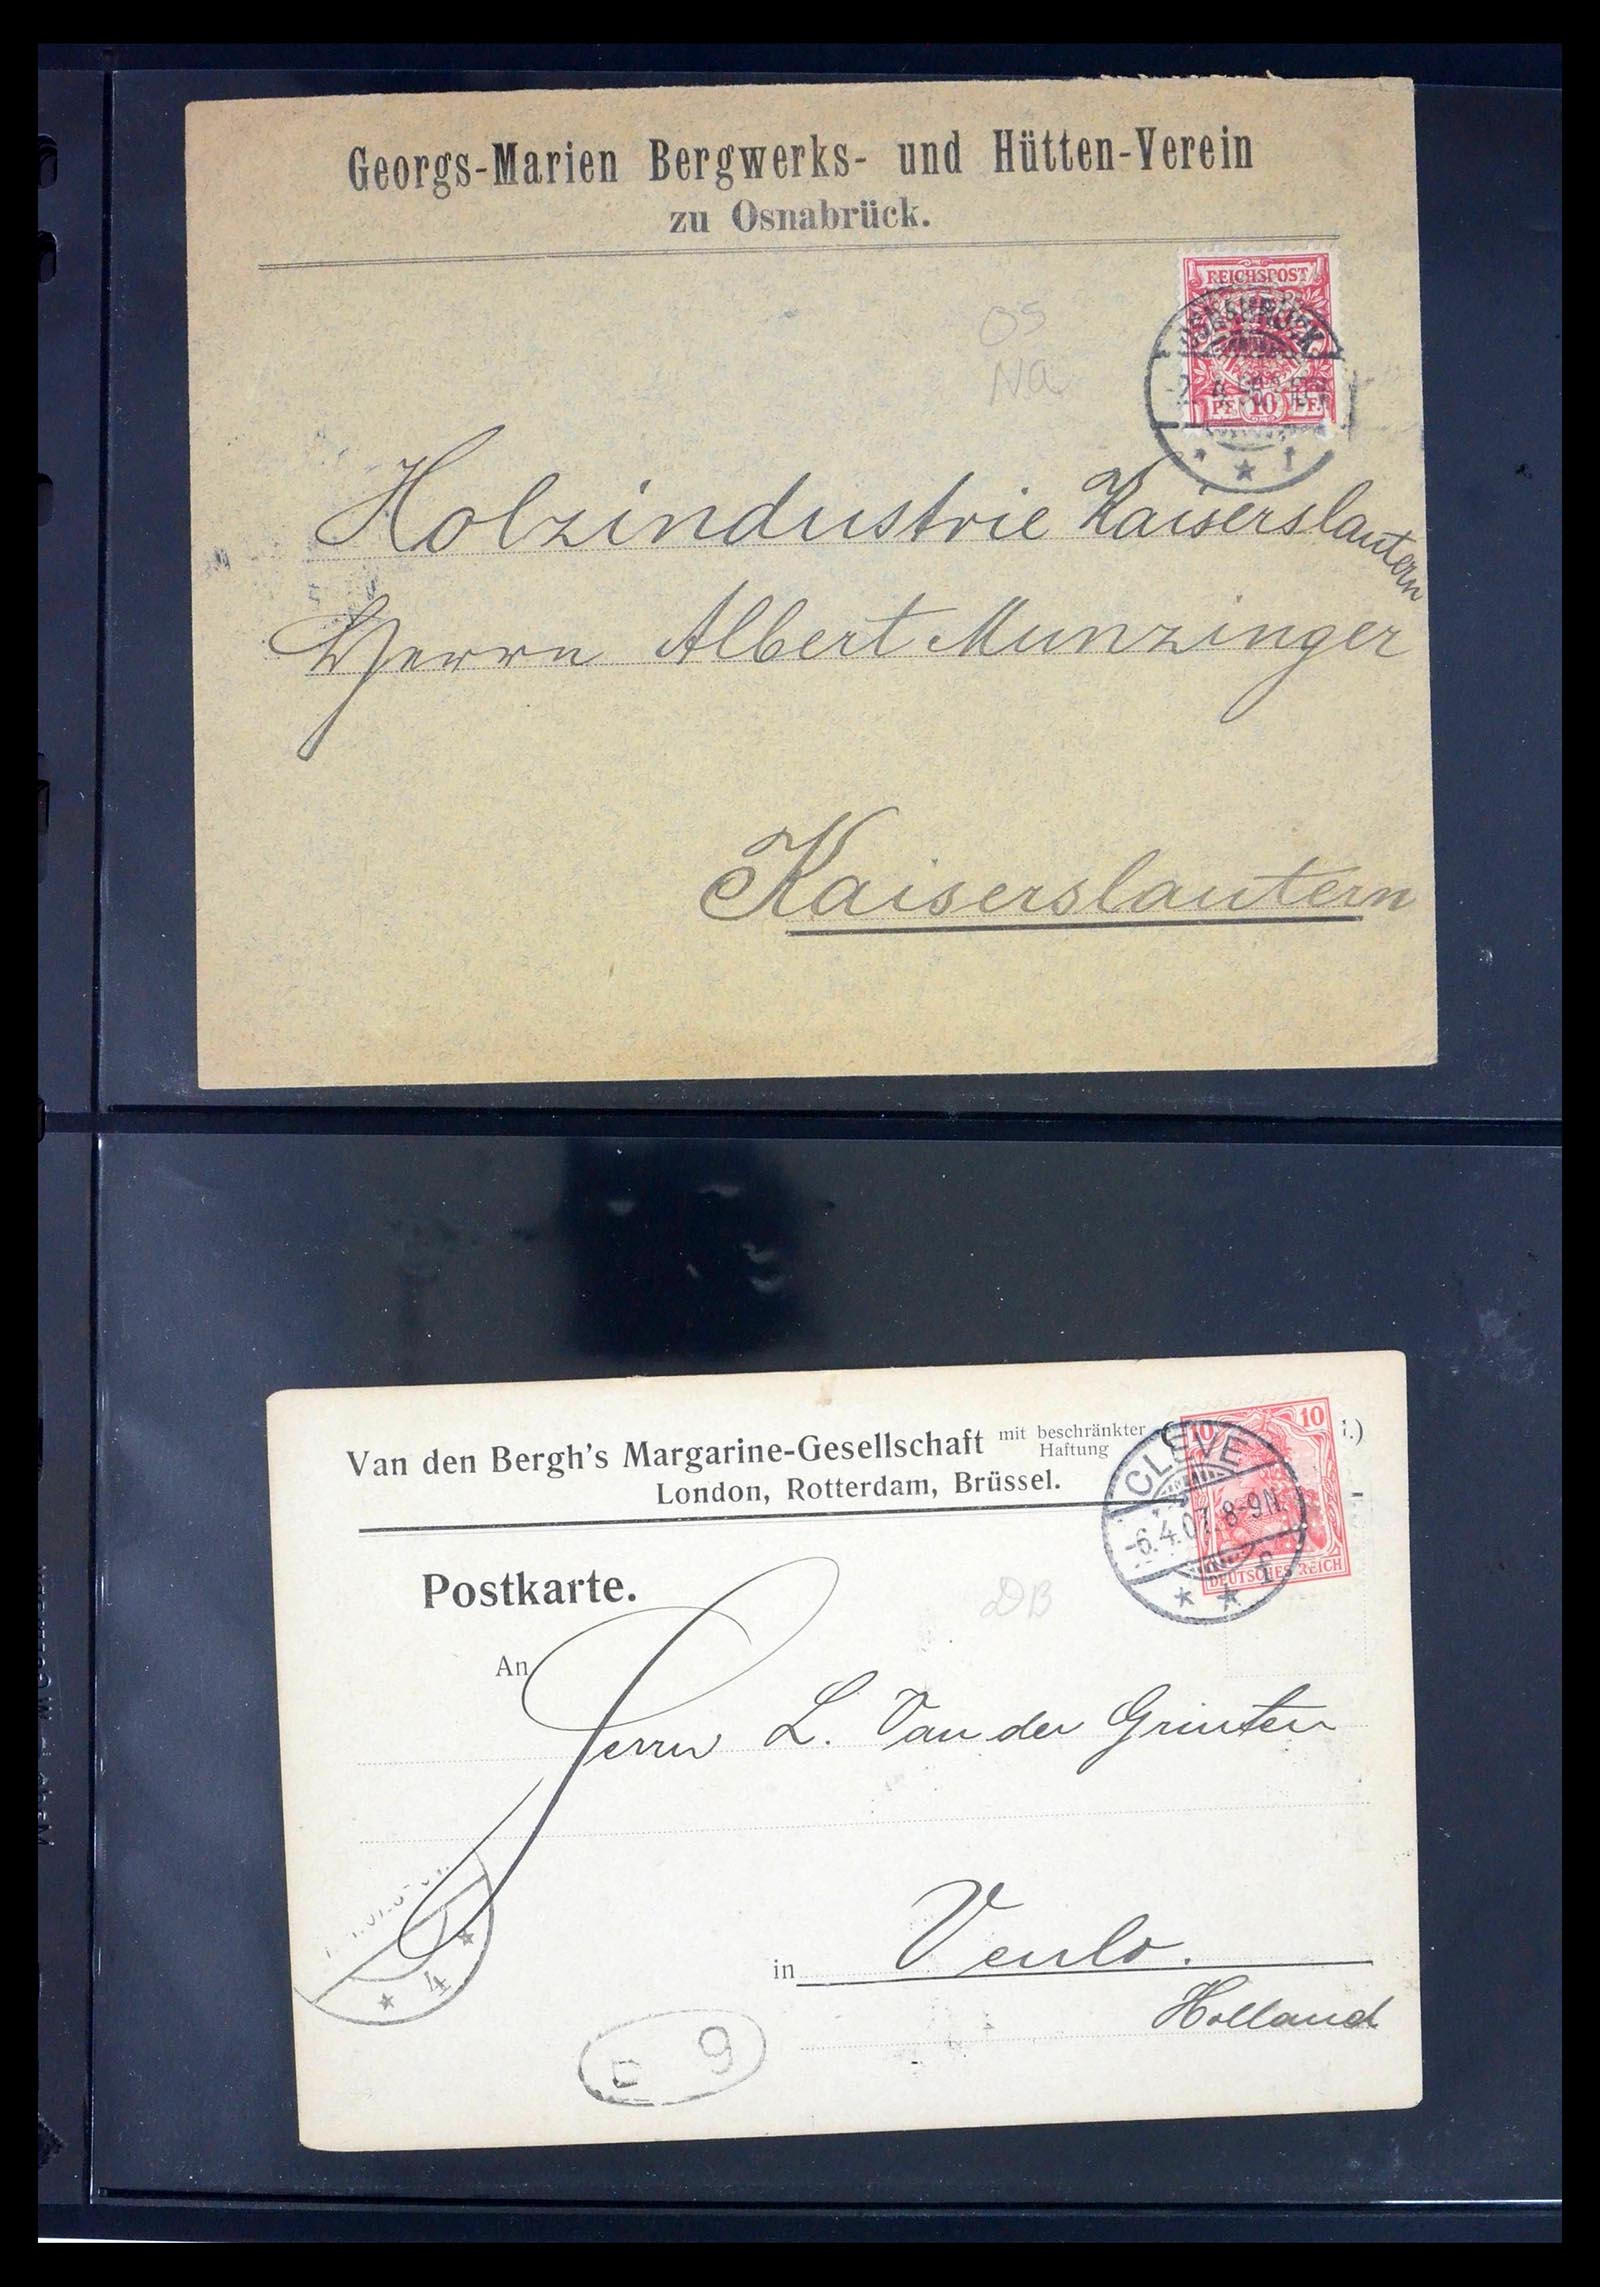 Georgs-Marien Bergwerks- und Hütten-Verein
zu Osnabrück.
REICHSPOST
OSNABRÜCK
PF. 10 PF.
* ★ 1
OS
Na
Holzindustrie Kaiserslautern
Herrn Albert Munzinger
Kaiserslautern
Van den Bergh's Margarine-Gesellschaft mit beschränkter Haftung
London, Rotterdam, Brüssel.
10 10
CLEVE
-6.4.07. 8-9N.
DEUTSCHES REICH
Postkarte.
DB
An
Herrn L. Van der Grinten
in Venlo.
Holland
4
9